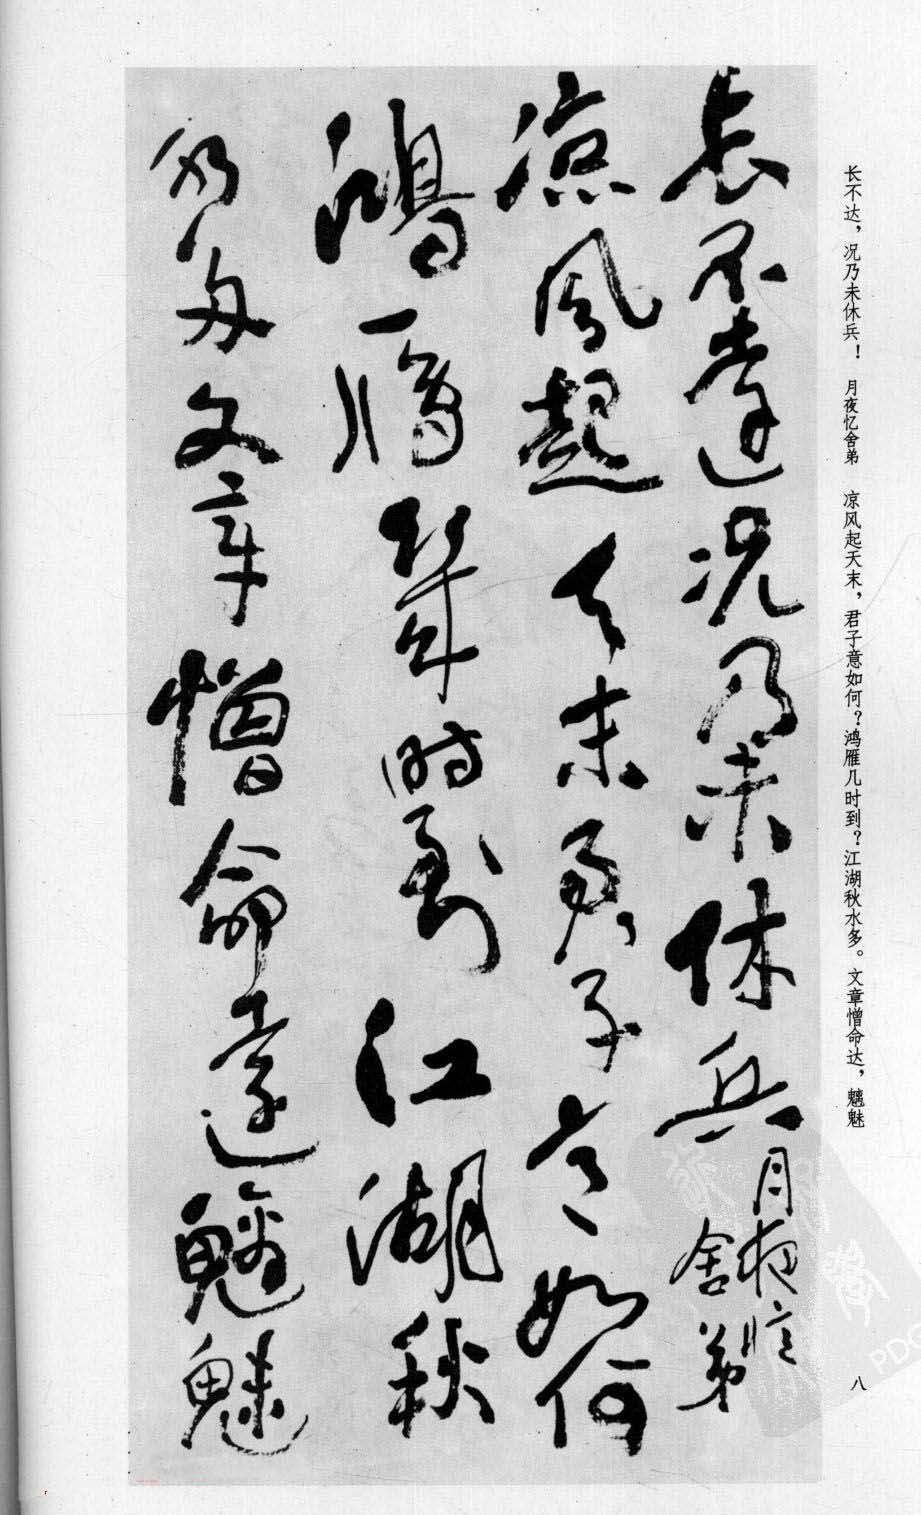 长不达，况乃未休兵！ 月夜忆舍弟 凉风起天末，君子意如何？鸿雁几时到？江湖秋水多。文章憎命达，魑魅
八
長不達况乃未休兵
月夜憶
舍弟
涼風起天末君子意如何
鴻雁幾時到江湖秋
水多文章憎命達魑魅
PDG